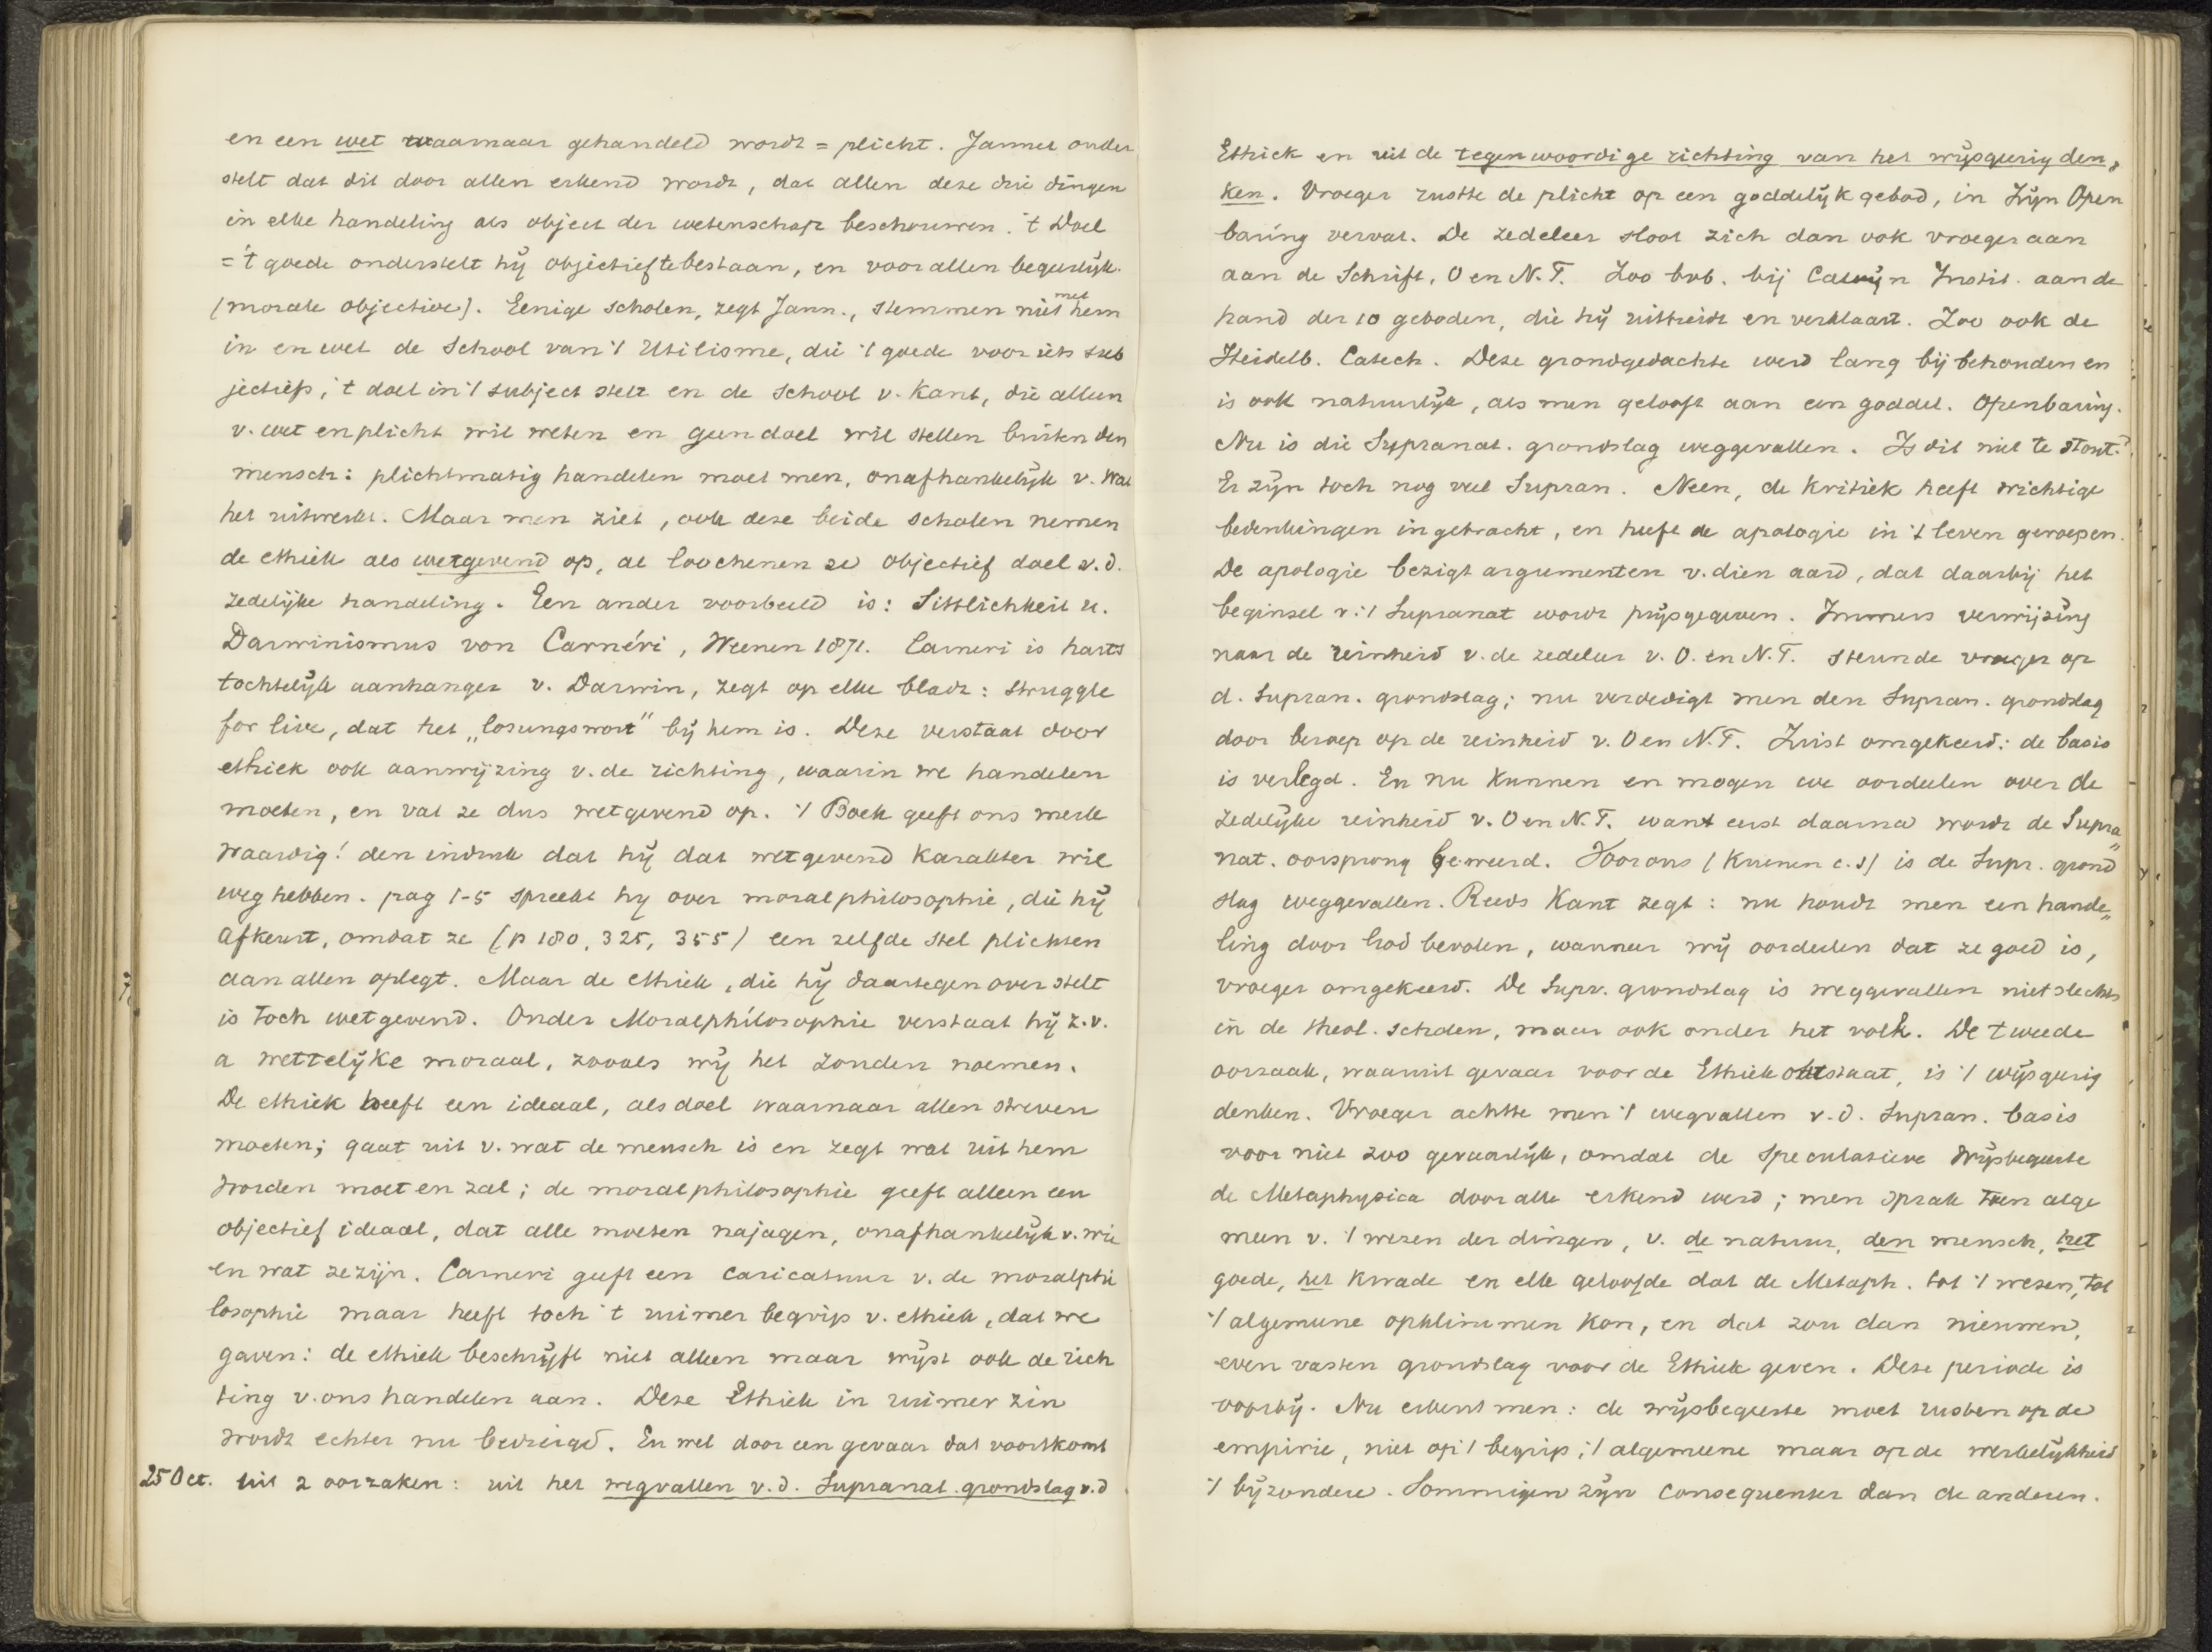 en een wet waarnaar gehandeld wordt = plicht. Jannet onder
stelt dat dit door allen erkend wordt, dat allen deze drie dingen
in elke handeling als object der wetenschap beschouwen. 't Doel
= 't goede onderstelt hij objectief te bestaan, en voor allen begeerlijk.
(morale objective). Eenige scholen, zegt Jann., stemmen niet met hem
in en wel de School van 't Utilisme, die 't goede voor iets sub
jectiefs, 't doel in 't subject stelt en de school v. Kant, die alleen
v. wet en plicht wil weten en geen doel wil stellen buiten den
mensch: plichtmatig handelen moet men, onafhankelijk v. wat
het uitwerkt. Maar men ziet, ook deze beide scholen nemen
de ethiek als wetgevend op, al loochenen ze objectief doel v.d.
zedelijke handeling. Een ander voorbeeld is: Sittlichkeit u.
Darwinismus von Carnéri, Weenen 1871. Carneri is harts
tochtelijk aanhanger v. Darwin, zegt op elke bladz: struggle
for live, dat het „losungswort" bij hem is. Deze verstaat door
ethiek ook aanwijzing v. de richting, waarin we handelen
moeten, en vat ze dus wetgevend op. 't Boek geeft ons merk
waardig! den indruk dat hij dat wetgevend karakter wil
weg hebben. pag 1-5 spreekt hij over moralphilosophie, die hij
afkeurt, omdat ze (p 180, 325, 355) een zelfde stel plichten
aan allen oplegt. Maar de ethiek, die hij daartegen over stelt
is toch wetgevend. Onder Moralphilosophie verstaat hij z.v.
a wettelijke moraal, zooals wij het zouden noemen.
De ethiek heeft een ideaal, als doel waarnaar allen streven
moeten; gaat uit v. wat de mensch is en zegt wat uit hem
worden moet en zal; de moralphilosophie geeft alleen een
objectief ideaal, dat alle moeten najagen, onafhankelijk v. wie
en wat ze zijn. Carneri geeft een caricatuur v. de moralphi
losophie maar heeft toch 't ruimer begrip v. ethiek, dat we
gaven: de ethiek beschrijft niet alleen maar wijst ook de rich
ting v. ons handelen aan. Deze Ethiek in ruimer zin
wordt echter nu bedreigd. En wel door een gevaar dat voortkomt
25 Oct. uit 2 oorzaken: uit het wegvallen v.d. Supranat. grondslag v.d
Ethiek en uit de tegenwoordige richting van het wijsgeerig den,
ken. Vroeger rustte de plicht op een goddelijk gebod, in Zijn Open
baring vervat. De zedeleer sloot zich dan ook vroeger aan
aan de Schrift, O en N.T. Zoo bvb. bij Calvijn Instit. aan de
hand der 10 geboden, die hij uitbreidt en verklaart. Zoo ook de
Heidelb. Catech. Deze grondgedachte werd lang bij behouden en
is ook natuurlijk, als men gelooft aan een goddel. Openbaring.
Nu is die Supranat. grondslag weggevallen. Is dit niet te stout?
Er zijn toch nog veel Supran. Neen, de Kritiek heeft wichtige
bedenkingen ingebracht, en heeft de apologie in 't leven geroepen.
De apologie bezigt argumenten v. dien aard, dat daarbij het
beginsel v. 't Supranat wordt prijsgegeven. Immers verwijzing
naar de reinheid v. de zedeleer v. O. en N.T. steunde vroeger op
d. Supran. grondslag; nu verdedigt men den Supran. grondslag
door beroep op de reinheid v. O en N.T. Juist omgekeerd: de basis
is verlegd. En nu kunnen en mogen we oordeelen over de
zedelijke reinheid v. O en N.T. want eerst daarna wordt de Supra"
nat. oorsprong beweerd. Voor ons (Kuenen c.s) is de Supr. grond
slag weggevallen. Reeds Kant zegt: nu houdt men een hande"
ling door God bevolen, wanneer wij oordeelen dat ze goed is,
vroeger omgekeerd. De Supr. grondslag is weggevallen niet slechts
in de theol. scholen, maar ook onder het volk. De tweede
oorzaak, waaruit gevaar voor de Ethiek ontstaat, is 't wijsgeerig
denken. Vroeger achtte men 't wegvallen v.d. Supran. basis
voor niet zoo gevaarlijk, omdat de Speculatieve Wijsbegeerte
de Metaphysica door alle erkend werd; men sprak toen alge
meen v. 't wezen der dingen, v. de natuur, den mensch, het
goede, het kwade en elk geloofde dat de Metaph. tot 't wezen, tot
't algemeene opklimmen kon, en dat zou dan nieuwen,
even vasten grondslag voor de Ethiek geven. Deze periode is
voorbij. Nu erkent men: de wijsbegeerte moet rusten op de
empirie, niet op 't begrip, 't algemeene maar op de werkelijkheid
't bijzondere. Sommigen zijn consequenter dan de anderen.